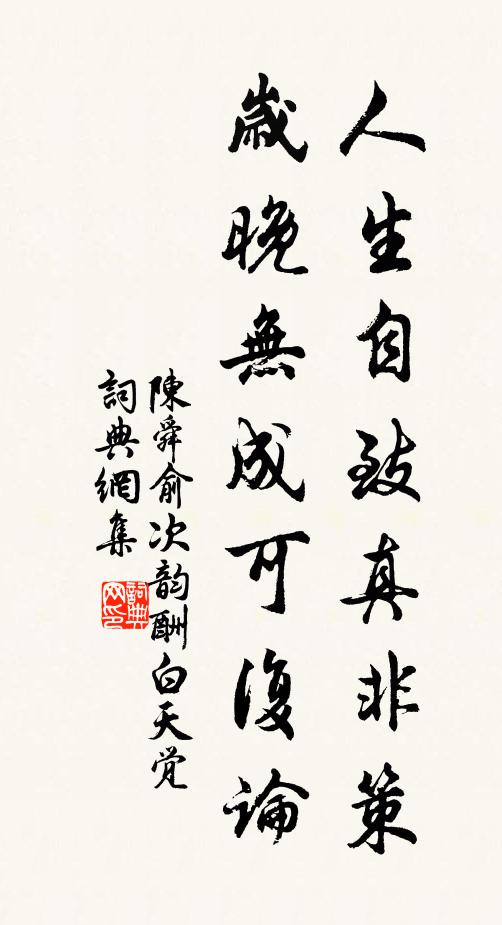 人生自致真非策
歲晚無成可復論
陳舜俞次韵酬白天觉
詞典網集
詞典
网印